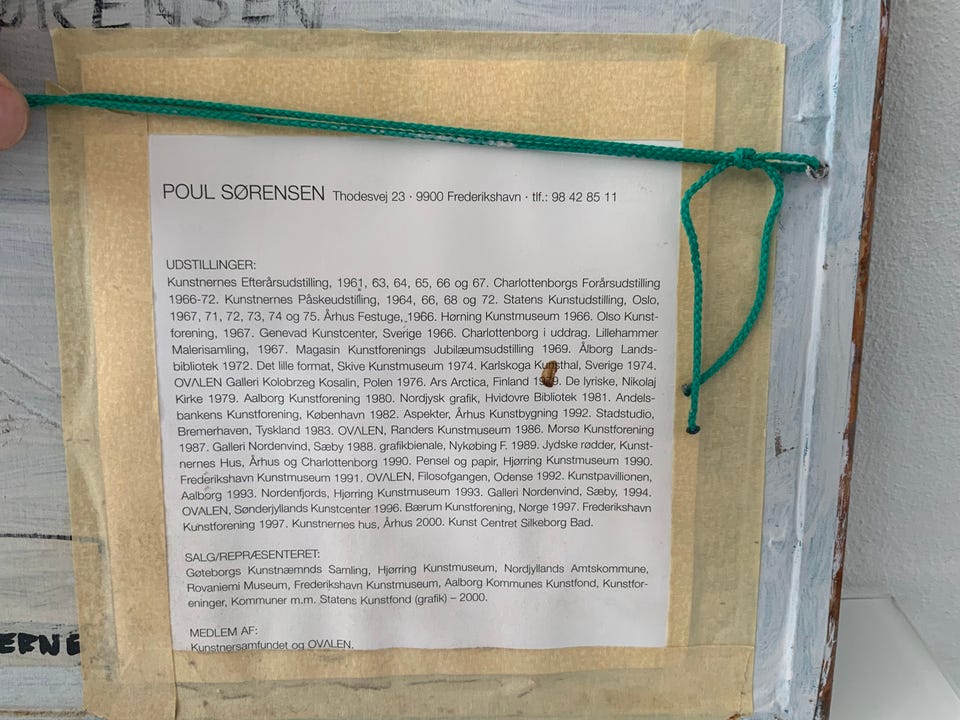 ØRENSEN
POUL SØRENSEN Thodesvej 23 · 9900 Frederikshavn · tlf.: 98 42 85 11
UDSTILLINGER:
Kunstnernes Efterårsudstilling, 1961, 63, 64, 65, 66 og 67. Charlottenborgs Forårsudstilling
1966-72. Kunstnernes Påskeudstilling, 1964, 66, 68 og 72. Statens Kunstudstilling, Oslo,
1967, 71, 72, 73, 74 og 75. Århus Festuge, 1966. Hørning Kunstmuseum 1966. Olso Kunst-
forening, 1967. Genevad Kunstcenter, Sverige 1966. Charlottenborg i uddrag. Lillehammer
Malerisamling, 1967. Magasin Kunstforenings Jubilæumsudstilling 1969. Ålborg Lands-
bibliotek 1972. Det lille format, Skive Kunstmuseum 1974. Karlskoga Kunsthal, Sverige 1974.
OVΛLEN Galleri Kolobrzeg Kosalin, Polen 1976. Ars Arctica, Finland De lyriske, Nikolaj
Kirke 1979. Aalborg Kunstforening 1980. Nordjysk grafik, Hvidovre Bibliotek 1981. Andels-
bankens Kunstforening, København 1982. Aspekter, Århus Kunstbygning 1992. Stadstudio,
Bremerhaven, Tyskland 1983. OVΛLEN, Randers Kunstmuseum 1986. Morsø Kunstforening
1987. Galleri Nordenvind, Sæby 1988. grafikbienale, Nykøbing F. 1989. Jydske rødder, Kunst-
nernes Hus, Århus og Charlottenborg 1990. Pensel og papir, Hjørring Kunstmuseum 1990.
Frederikshavn Kunstmuseum 1991. OVΛLEN, Filosofgangen, Odense 1992. Kunstpavillionen,
Aalborg 1993. Nordenfjords, Hjørring Kunstmuseum 1993. Galleri Nordenvind, Sæby, 1994.
OVΛLEN, Sønderjyllands Kunstcenter 1996. Bærum Kunstforening, Norge 1997. Frederikshavn
Kunstforening 1997. Kunstnernes hus, Århus 2000. Kunst Centret Silkeborg Bad.
SALG/REPRÆSENTERET:
Gøteborgs Kunstnæmnds Samling, Hjørring Kunstmuseum, Nordjyllands Amtskommune,
Rovaniemi Museum, Frederikshavn Kunstmuseum, Aalborg Kommunes Kunstfond, Kunstfor-
eninger, Kommuner m.m. Statens Kunstfond (grafik) – 2000.
ERNE
MEDLEM AF:
Kunstnersamfundet og OVΛLEN.